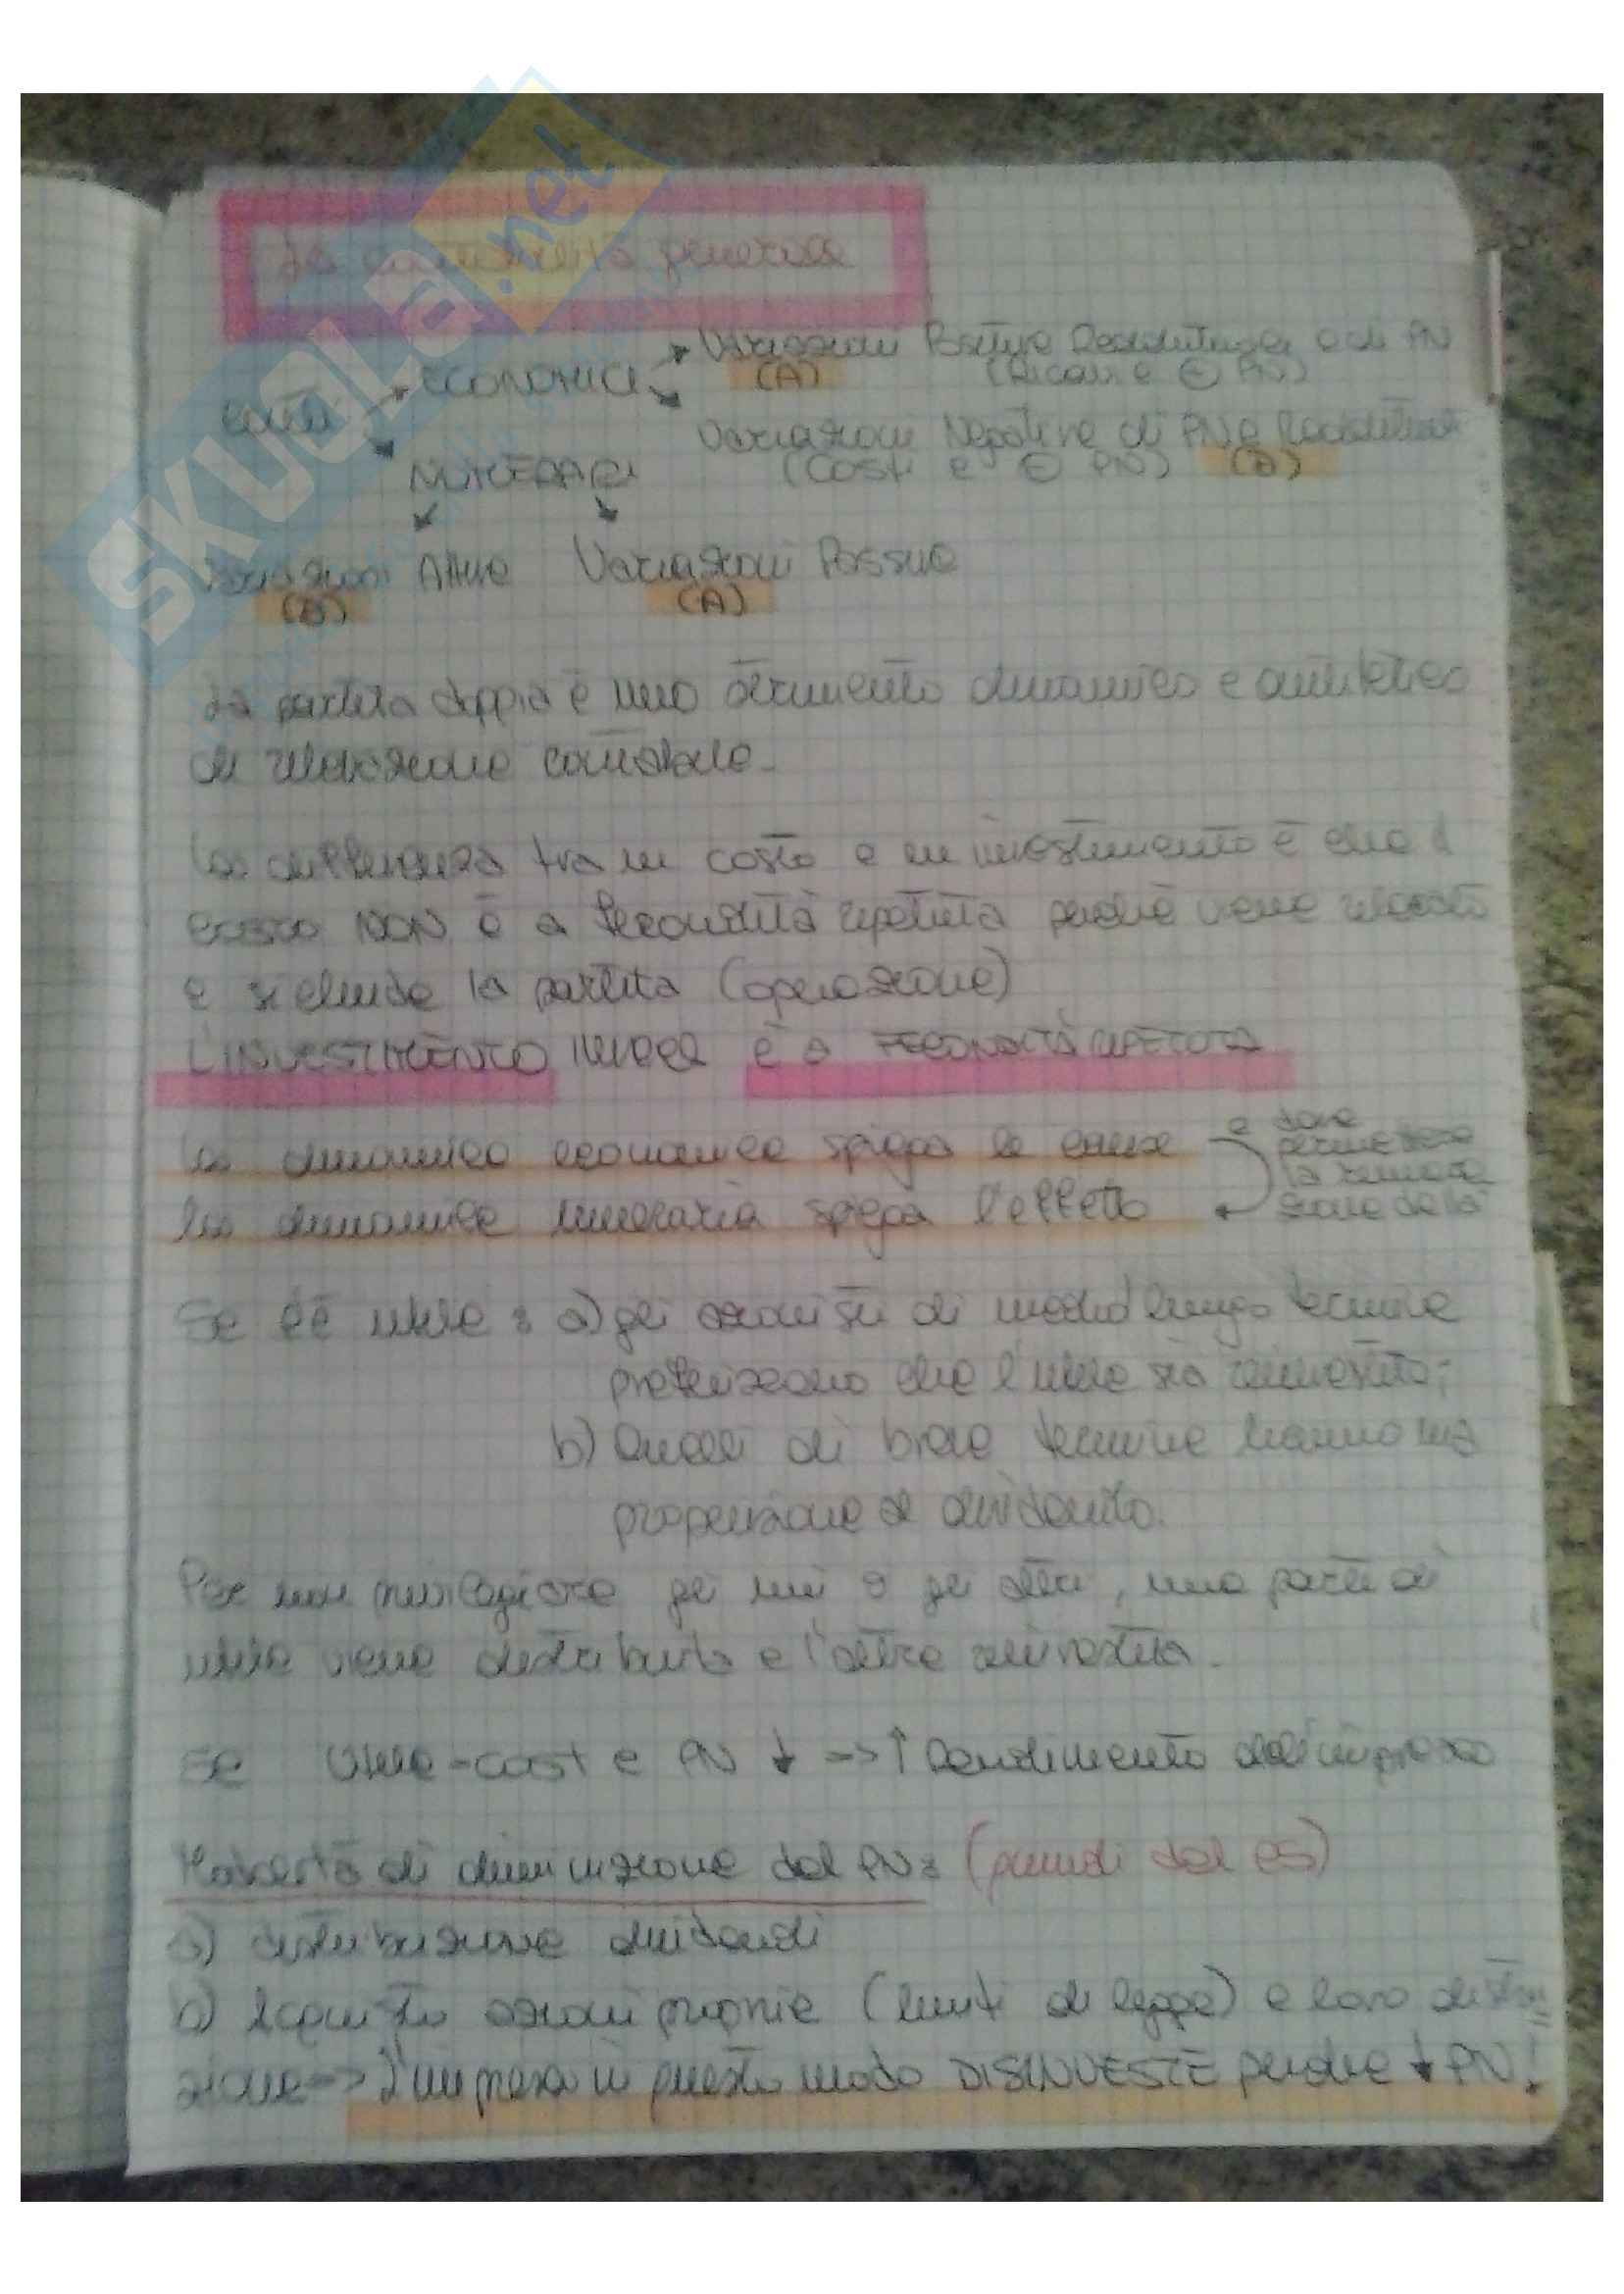 La contabilità generale
CONTI
ECONOMICI
Variazioni Positive Reddituali e di PN
(A) (Ricavi e ⊕ PN)
Variazioni Negative di PN e Reddituali
(Costi e ⊖ PN) (D)
NUMERARI
Variazioni Attive Variazioni Passive
(D) (A)
La partita doppia è uno strumento dinamico e
di rilevazione contabile.
La differenza tra un costo e un investimento è che il
costo NON è a fecondità ripetuta perché viene
e si chiude la partita (operazione)
L'INVESTIMENTO invece è a FECONDITÀ RIPETUTA
La dinamica economica spiega le cause e deve
permettere
la remunera
zione della
la dinamica numeraria spiega l'effetto
Se c'è utile: a) gli azionisti di medio/lungo termine
preferiscono che l'utile sia reinvestito;
b) Quelli di breve termine hanno una
propensione al dividendo.
Per non privilegiare gli uni o gli altri, una parte di
utile viene distribuita e l'altra reinvestita.
Se Utile = cost e PN ↓ => ↑ Rendimento dell'impresa
Modalità di diminuzione del PN: (quindi del CS)
a) distribuzione dividendi
b) Acquisto azioni proprie (limiti di legge) e loro distru
zione => L'impresa in questo modo DISINVESTE perché ↓ PN!
SKUOLA.net